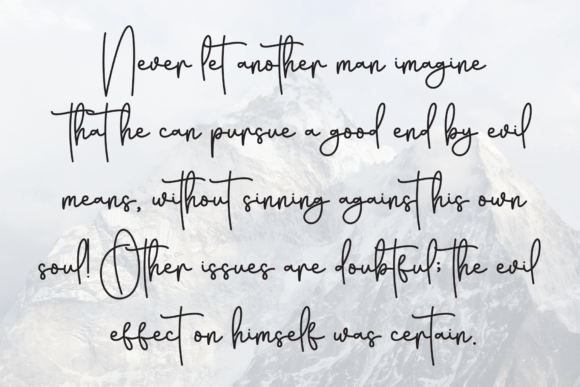 Never let another man imagine
that he can pursue a good end by evil
means, without sinning against his own
soul! Other issues are doubtful; the evil
effect on himself was certain.